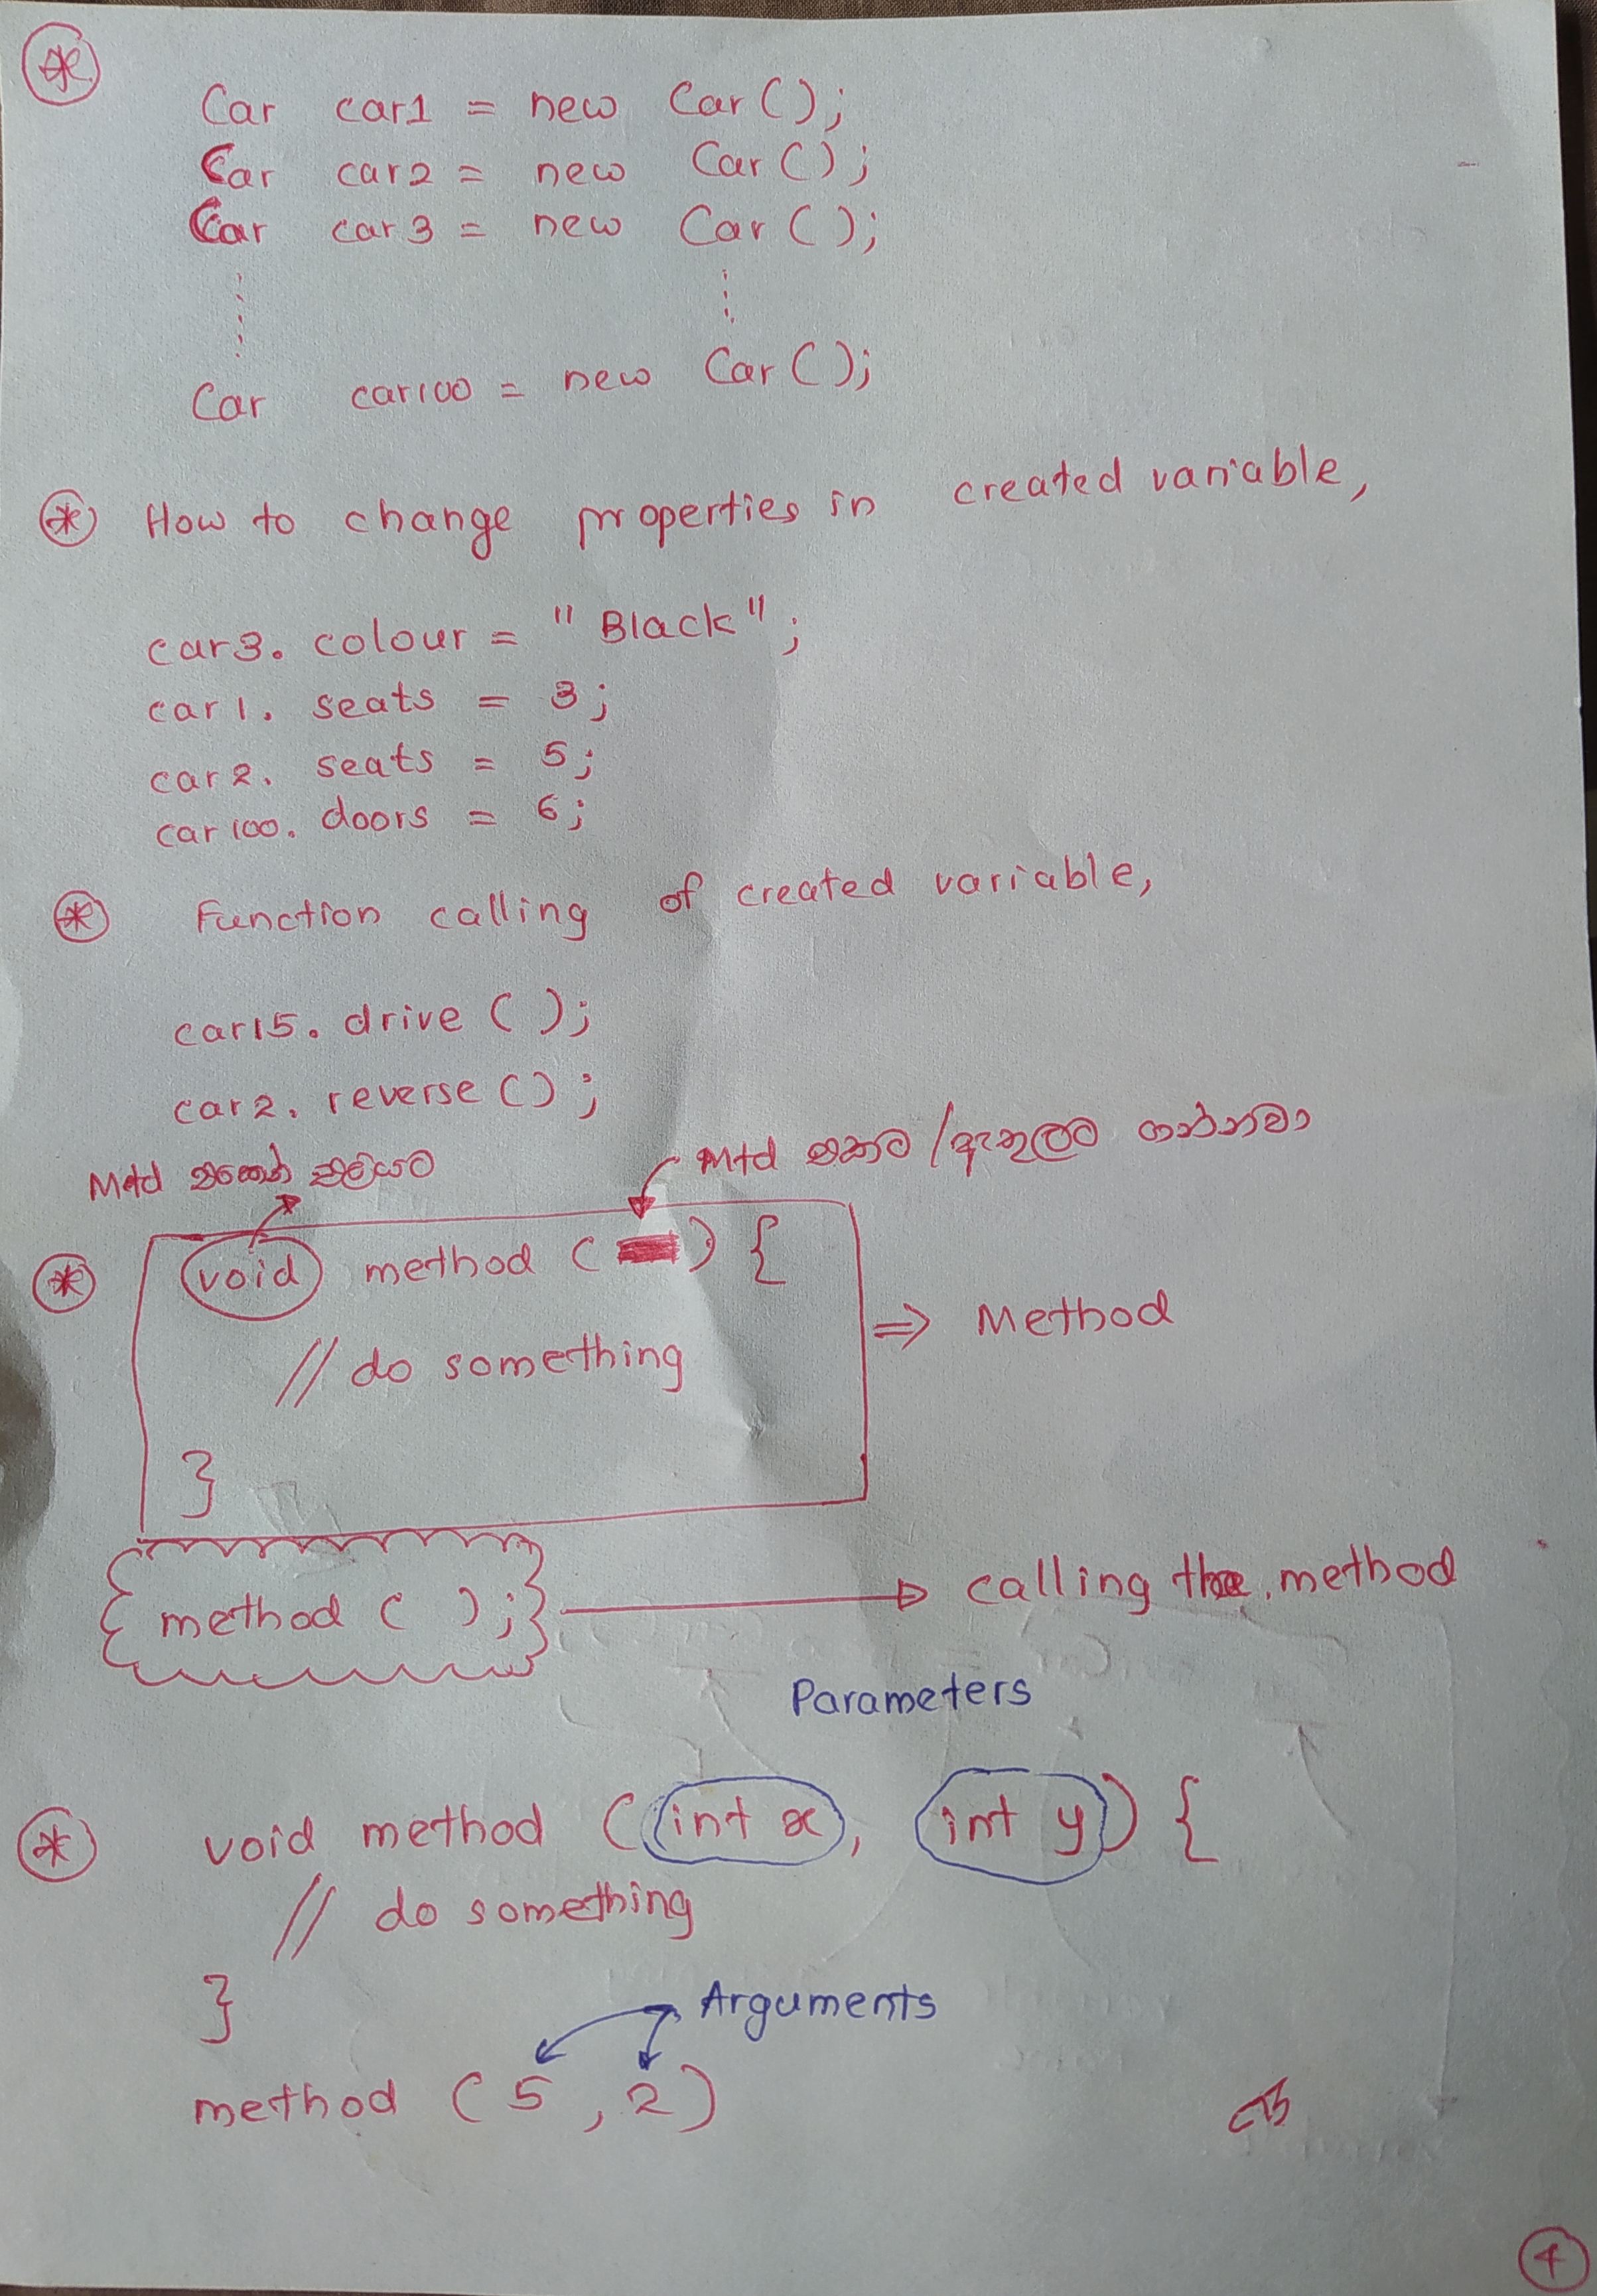 Car car1 = new Car();
Car car2 = new Car();
Car car3 = new Car();
Car car100 = new Car();
How to change properties in created variable,
car3. colour = "Black";
car1. seats = 3;
car2. seats = 5;
car100. doors = 6;
Function calling of created variable,
car15. drive ( );
car2. reverse ( );
Mtd එකෙන් එළියට
Mtd එකට /ඇතුලට ගන්නවා
void method ( ) {
// do something
}
⇒ Method
method ( );
calling the method
Parameters
void method (int x, int y) {
// do something
}
Arguments
method ( 5 , 2 )
4